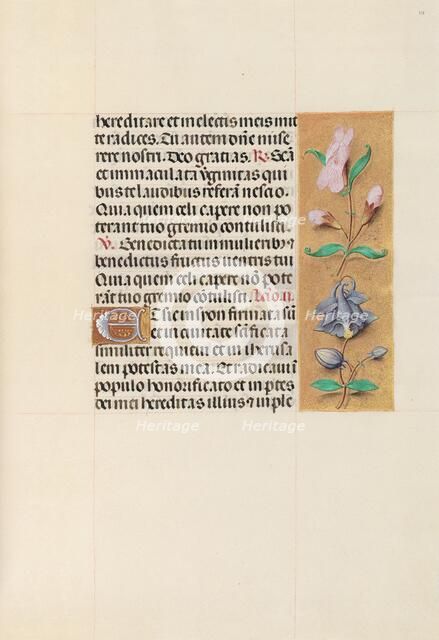 hereditare et in electis meis mit
te radices. Tu autem dñe mise
rere nostri. Deo gratias. R. Scã
et immaculata v̄ginitas qui
bus te laudibus referã nescio.
Quia quem celi capere non po
terant tuo gremio contulisti.
V. Benedicta tu in mulierib₉ ⁊
benedictus fructus ventris tui
Quia quem celi capere non pote
rãt tuo gremio cõtulisti. Lcõ. ii.
Et sic in syon firmata sũ
et in ciuitate scificata
similiter requieui et in iherusa
lem potestas mea. Et radicaui ĩ
populo honorificato et in ptes
dei mei hereditas illius ⁊ in ple
Heritage
Heritage
Heritage
Heritage
Heritage